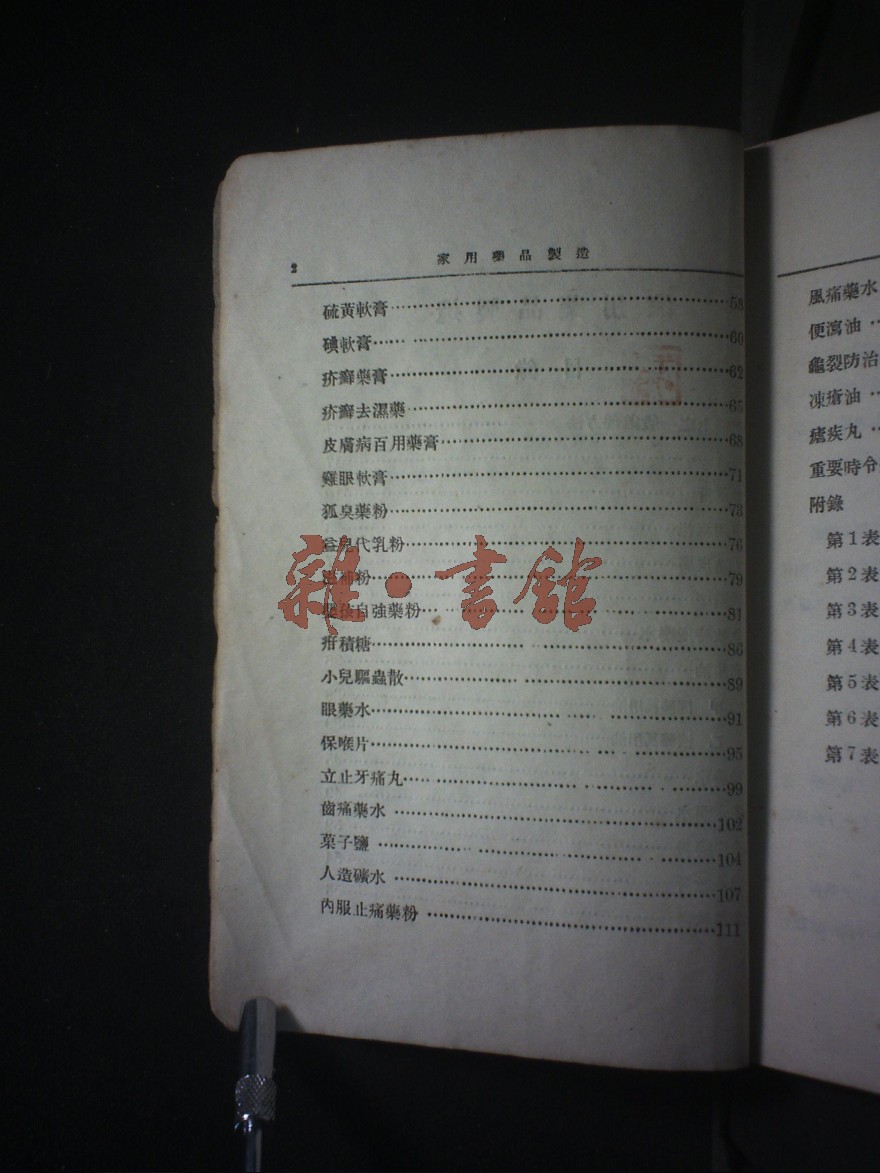 2 家用藥品製造
硫黃軟膏 58
碘軟膏 60
疥癬藥膏 62
疥癬去濕藥 65
皮膚病百用藥膏 68
雞眼軟膏 71
狐臭藥粉 73
益兒代乳粉 76
補粉 79
嬰孩自強藥粉 81
疳積糖 86
小兒驅蟲散 89
眼藥水 91
保喉片 95
立止牙痛丸 99
齒痛藥水 102
菓子鹽 104
人造礦水 107
內服止痛藥粉 111
風痛藥水
便瀉油
龜裂防治
凍瘡油
瘧疾丸
重要時令
附錄
第1表
第2表
第3表
第4表
第5表
第6表
第7表
雜·書館